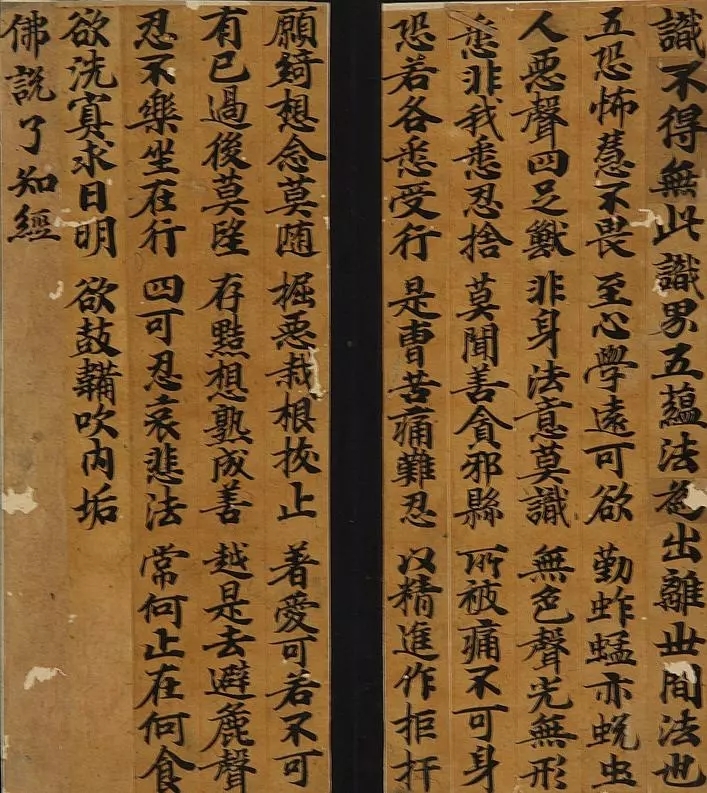 識不得無此識界五蘊法為出離世間法也
五恐怖慧不畏　至心學遠可欲　勤蚱蜢亦蜕虫
人惡聲四足獸　非身法意莫識　無色聲光無形
悉非我悉忍捨　莫聞善貪邪縣　所被痛不可身
恐若各悉受行　是曹苦痛難忍　以精進作拒扞
願綺想念莫随　掘惡栽根拔止　著愛可若不可
有已過後莫望　存黠想熟成善　越是去避麁聲
忍不樂坐在行　四可忍哀悲法　常何止在何食
欲洗窴求日明　欲鼓鞴吹内垢
佛說了知經